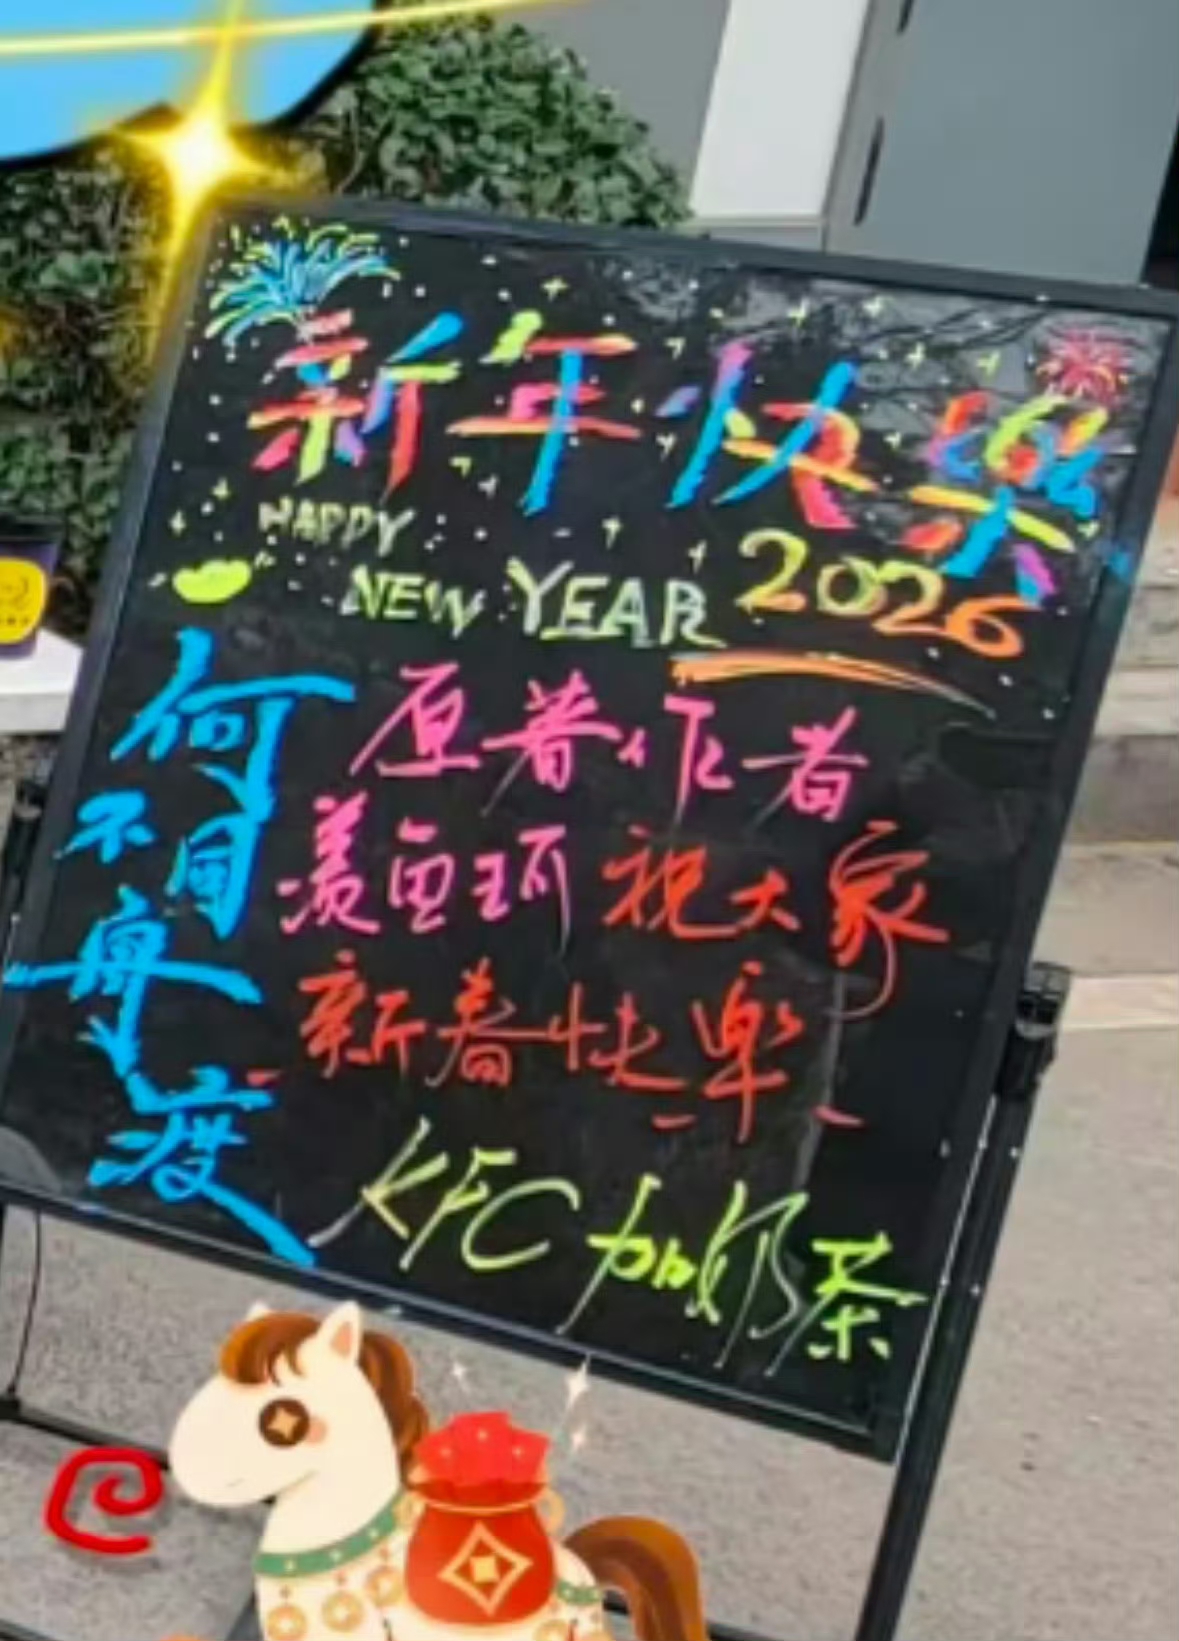 新年快樂
HAPPY
NEW YEAR 2026
何不同舟渡
原著作者
羡鱼珂祝大家
新春快楽
KFC加奶茶